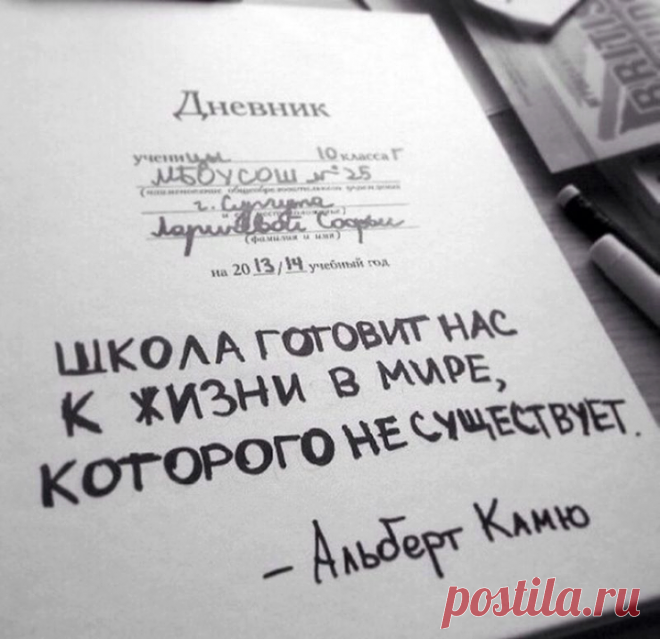 Дневник
ученицы 10 класса Г
МБОУСОШ №25
(наименование общеобразовательного учреждения
г. Сургута
Софьи
(фамилия и имя)
на 2013/14 учебный год
ШКОЛА ГОТОВИТ НАС
К ЖИЗНИ В МИРЕ,
КОТОРОГО НЕ СУЩЕСТВУЕТ.
– Альберт Камю
postila.ru